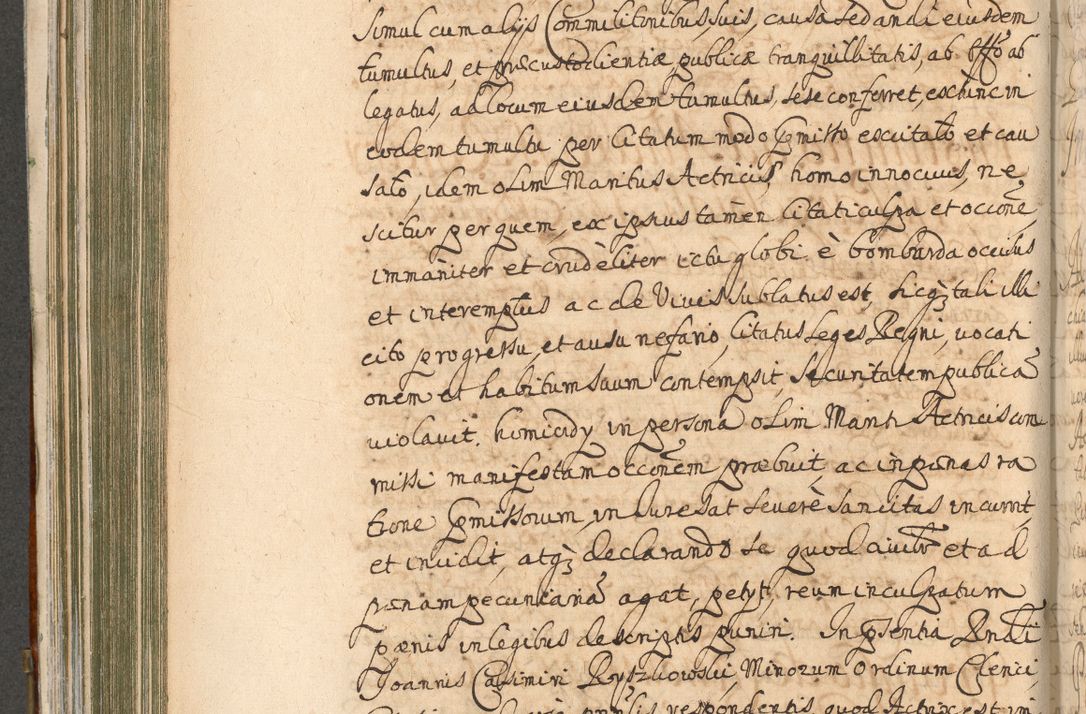 simul cum alijs Commilitonibus suis, causa sedandi eiusdem
tumultus, et præcustodientiæ publicæ tranquillitatis, ab Offo ab
legatus, ad locum eiusdem tumultus, sese conferret, exhinc in
eodem tumultu per Citatum modo pmisso excitato et cau
sato, idem olim Maritus Actricis, homo innocuus, ne
scitur per quem, ex ipsius tamen Citati culpa et occone,
immaniter et crudeliter ictu globi è bombarda occisus
et interemptus ac de Viuis sublatus est, sicq tali illi
cito progressu, et ausu nefario, Citatus Leges Regni, uocati
onem et habitum suum contempsit, securitatem publicã
uiolauit. homicidy in persona olim Mariti Actricis com
missi manifestam occonem præbuit, ac in pænas ra
tione pmissorum, in Iure sat seuerè sancitas incurrit,
et incidit, atq declarando se quod ciuilr et ad
pænam pecuniariã agat, petyt, reum inculpatum
pænis in legibus descriptis puniri. In psentia Rndi
Joannis Casimiri Ryszkowskij, Minorum Ordinum Clerici
respondentis quod Actrix est in